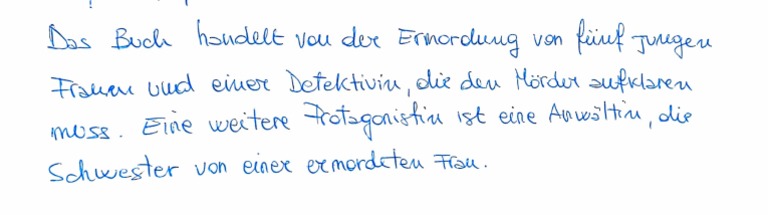 Das Buch handelt von der Ermordung von fünf jungen
Frauen und einer Detektivin, die den Mörder aufklären
muss. Eine weitere Protagonistin ist eine Anwältin, die
Schwester von einer ermordeten Frau.